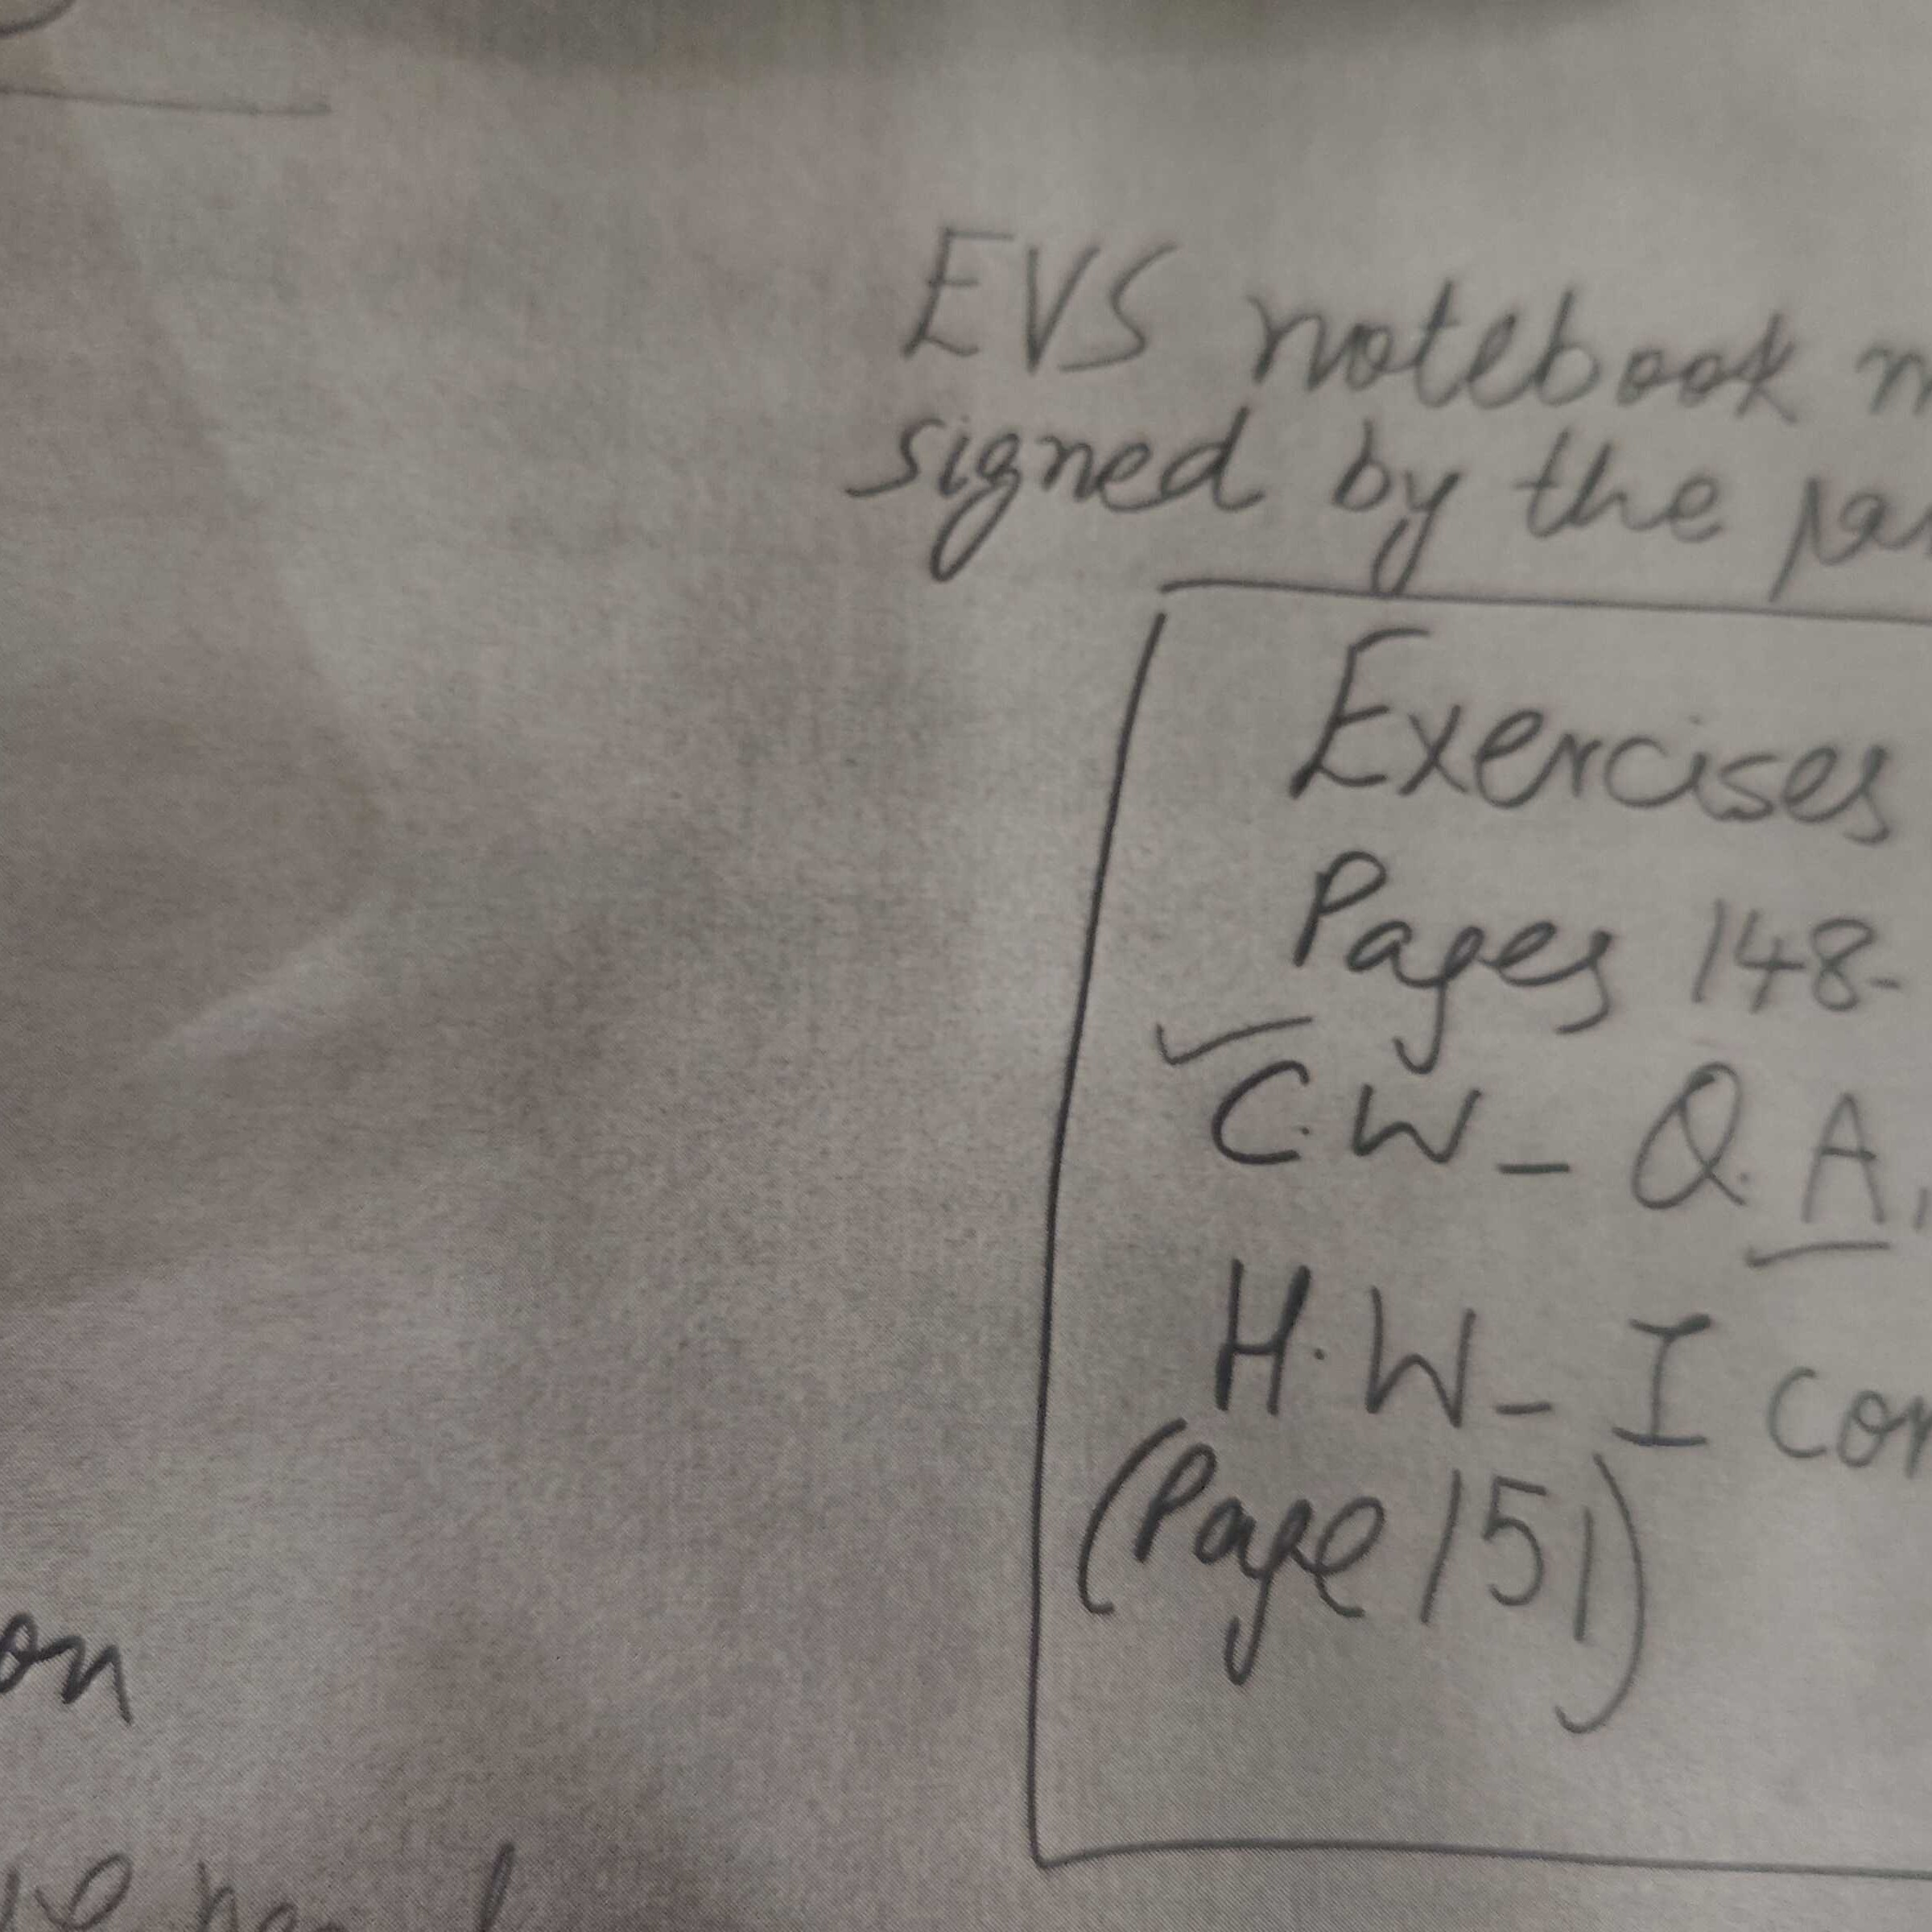 EVS notebook
signed by the
Exercises
Pages 148-
C.W - Q. A.
H.W - I
(Page 151)
on